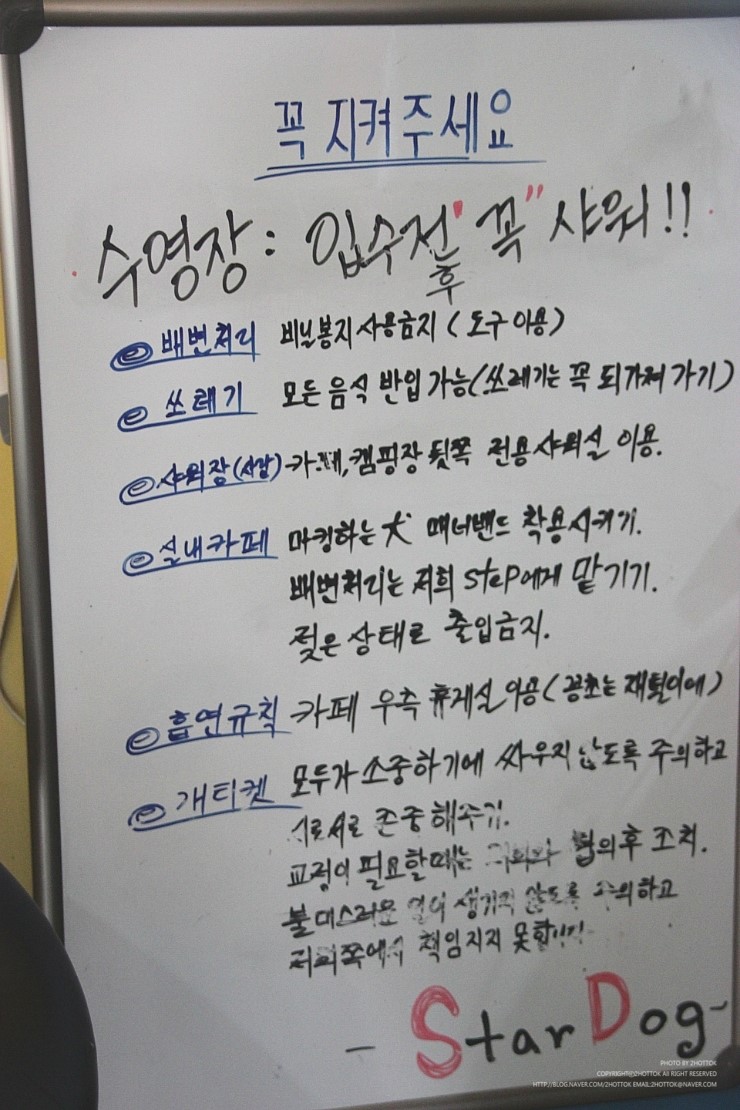 꼭 지켜주세요
수영장 : 입수전 "꼭" 샤워!!
후
배변처리 비닐봉지 사용금지 (도구 이용)
쓰레기 모든 음식 반입 가능 (쓰레기는 꼭 되가져 가기)
샤워장(사람) - 카페, 캠핑장 뒷쪽 전용샤워실 이용.
실내카페 마킹하는 犬 매너밴드 착용시키기.
배변처리는 저희 step에게 맡기기.
젖은 상태로 출입금지.
흡연규칙 카페 우측 휴게실 이용 (꽁초는 재털이에)
개티켓 모두가 소중하기에 싸우지 않도록 주의하고
서로서로 존중해주기.
교정이 필요할때는 협의후 조치.
불미스러운 일이 생기지 않도록 주의하고
저희쪽에서 책임지지 못합니다
- Star Dog -
PHOTO BY 2HOTTOK
COPYRIGHT@2HOTTOK All RIGHT RESERVED
HTTP://BLOG.NAVER.COM/2HOTTOK EMAIL:2HOTTOK@NAVER.COM